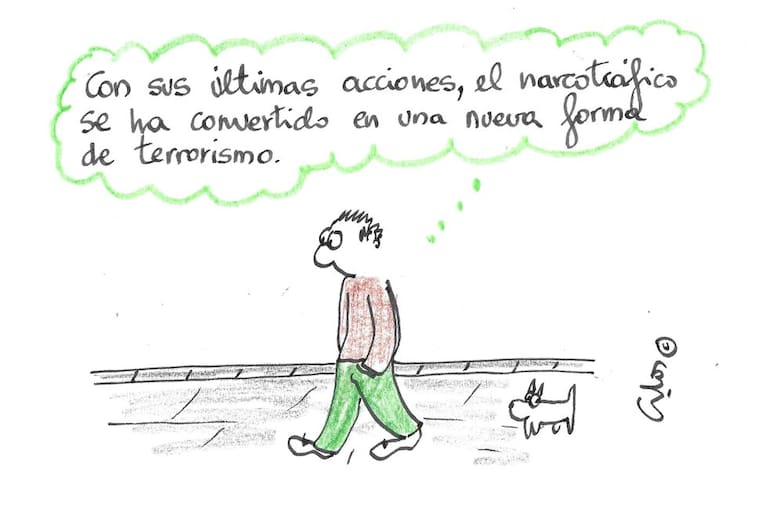 Con sus últimas acciones, el narcotráfico
se ha convertido en una nueva forma
de terrorismo.